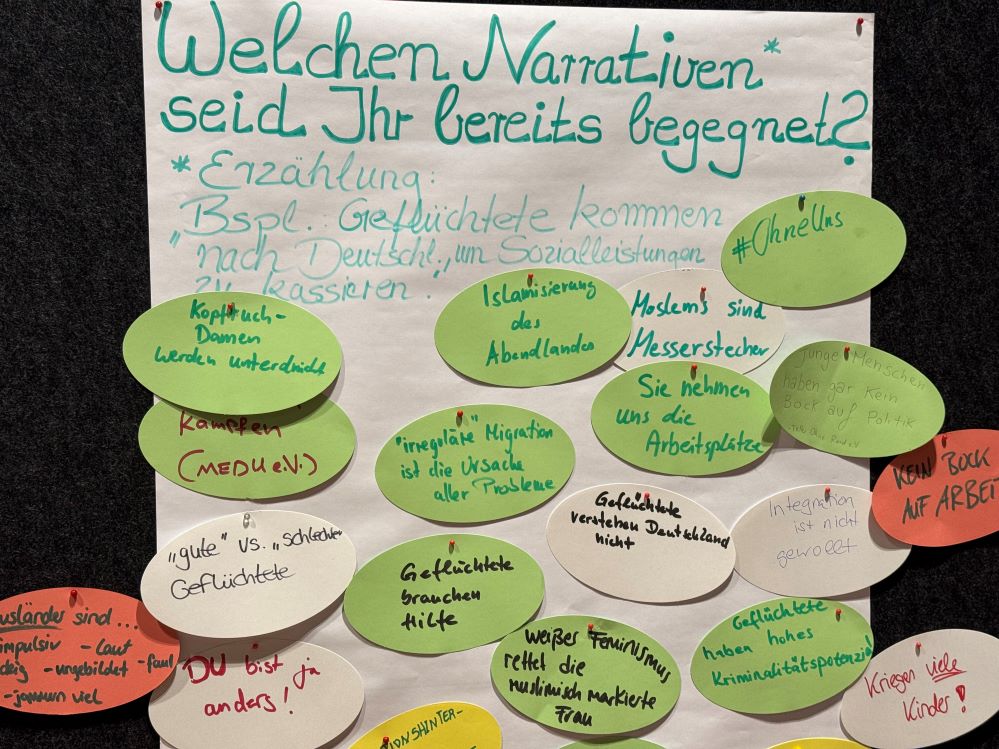 Welchen Narrativen*
seid Ihr bereits begegnet?
* Erzählung:
Bspl.: Geflüchtete kommen
"nach Deutschl., um Sozialleistungen
zu kassieren.
#OhneUns
Kopftuch-
Damen
werden unterdrückt
Islamisierung
des
Abendlandes
Moslems sind
Messerstecher
Sie nehmen
uns die
Arbeitsplätze
Junge Menschen
haben gar kein
Bock auf Politik
kämpfen
(MEDU e.V.)
"irreguläre Migration
ist die Ursache
aller Probleme
KEIN BOCK
AUF ARBEIT
"gute" vs. "schlechte"
Geflüchtete
Geflüchtete
verstehen Deutschland
nicht
Integration
ist nicht
gewollt
Geflüchtete
brauchen
Hilfe
usländer sind...
impulsiv - laut
- ungebildet - faul
- jammern viel
DU bist ja
anders!
weißer Feminismus
rettet die
muslimisch markierte
Frau
Geflüchtete
haben hohes
Kriminalitätspotenzial
Kriegen viele
Kinder!
IONSHINTER-